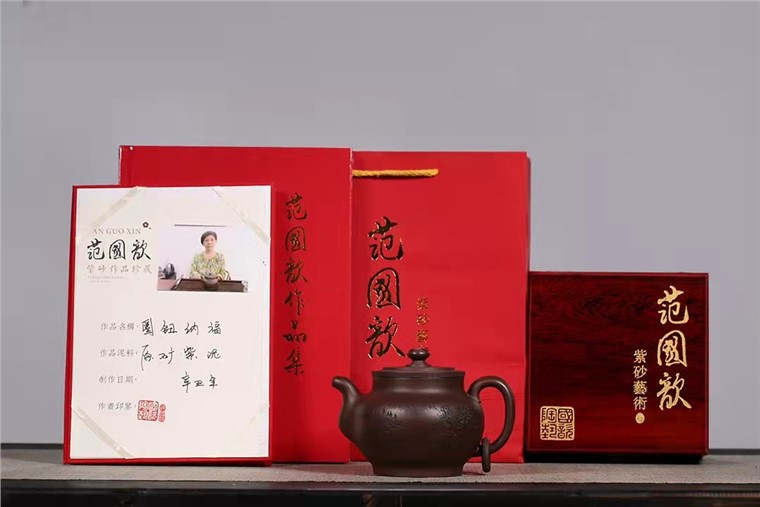 AN GUO XIN
范國歆
紫砂作品珍藏
作品名稱：圈鈕纳福
作品泥料：原矿紫泥
制作日期：辛丑年
作者印鑒：
范國歆作品集
范國歆
紫砂藝
范國歆
紫砂藝術
國歆
陶藝